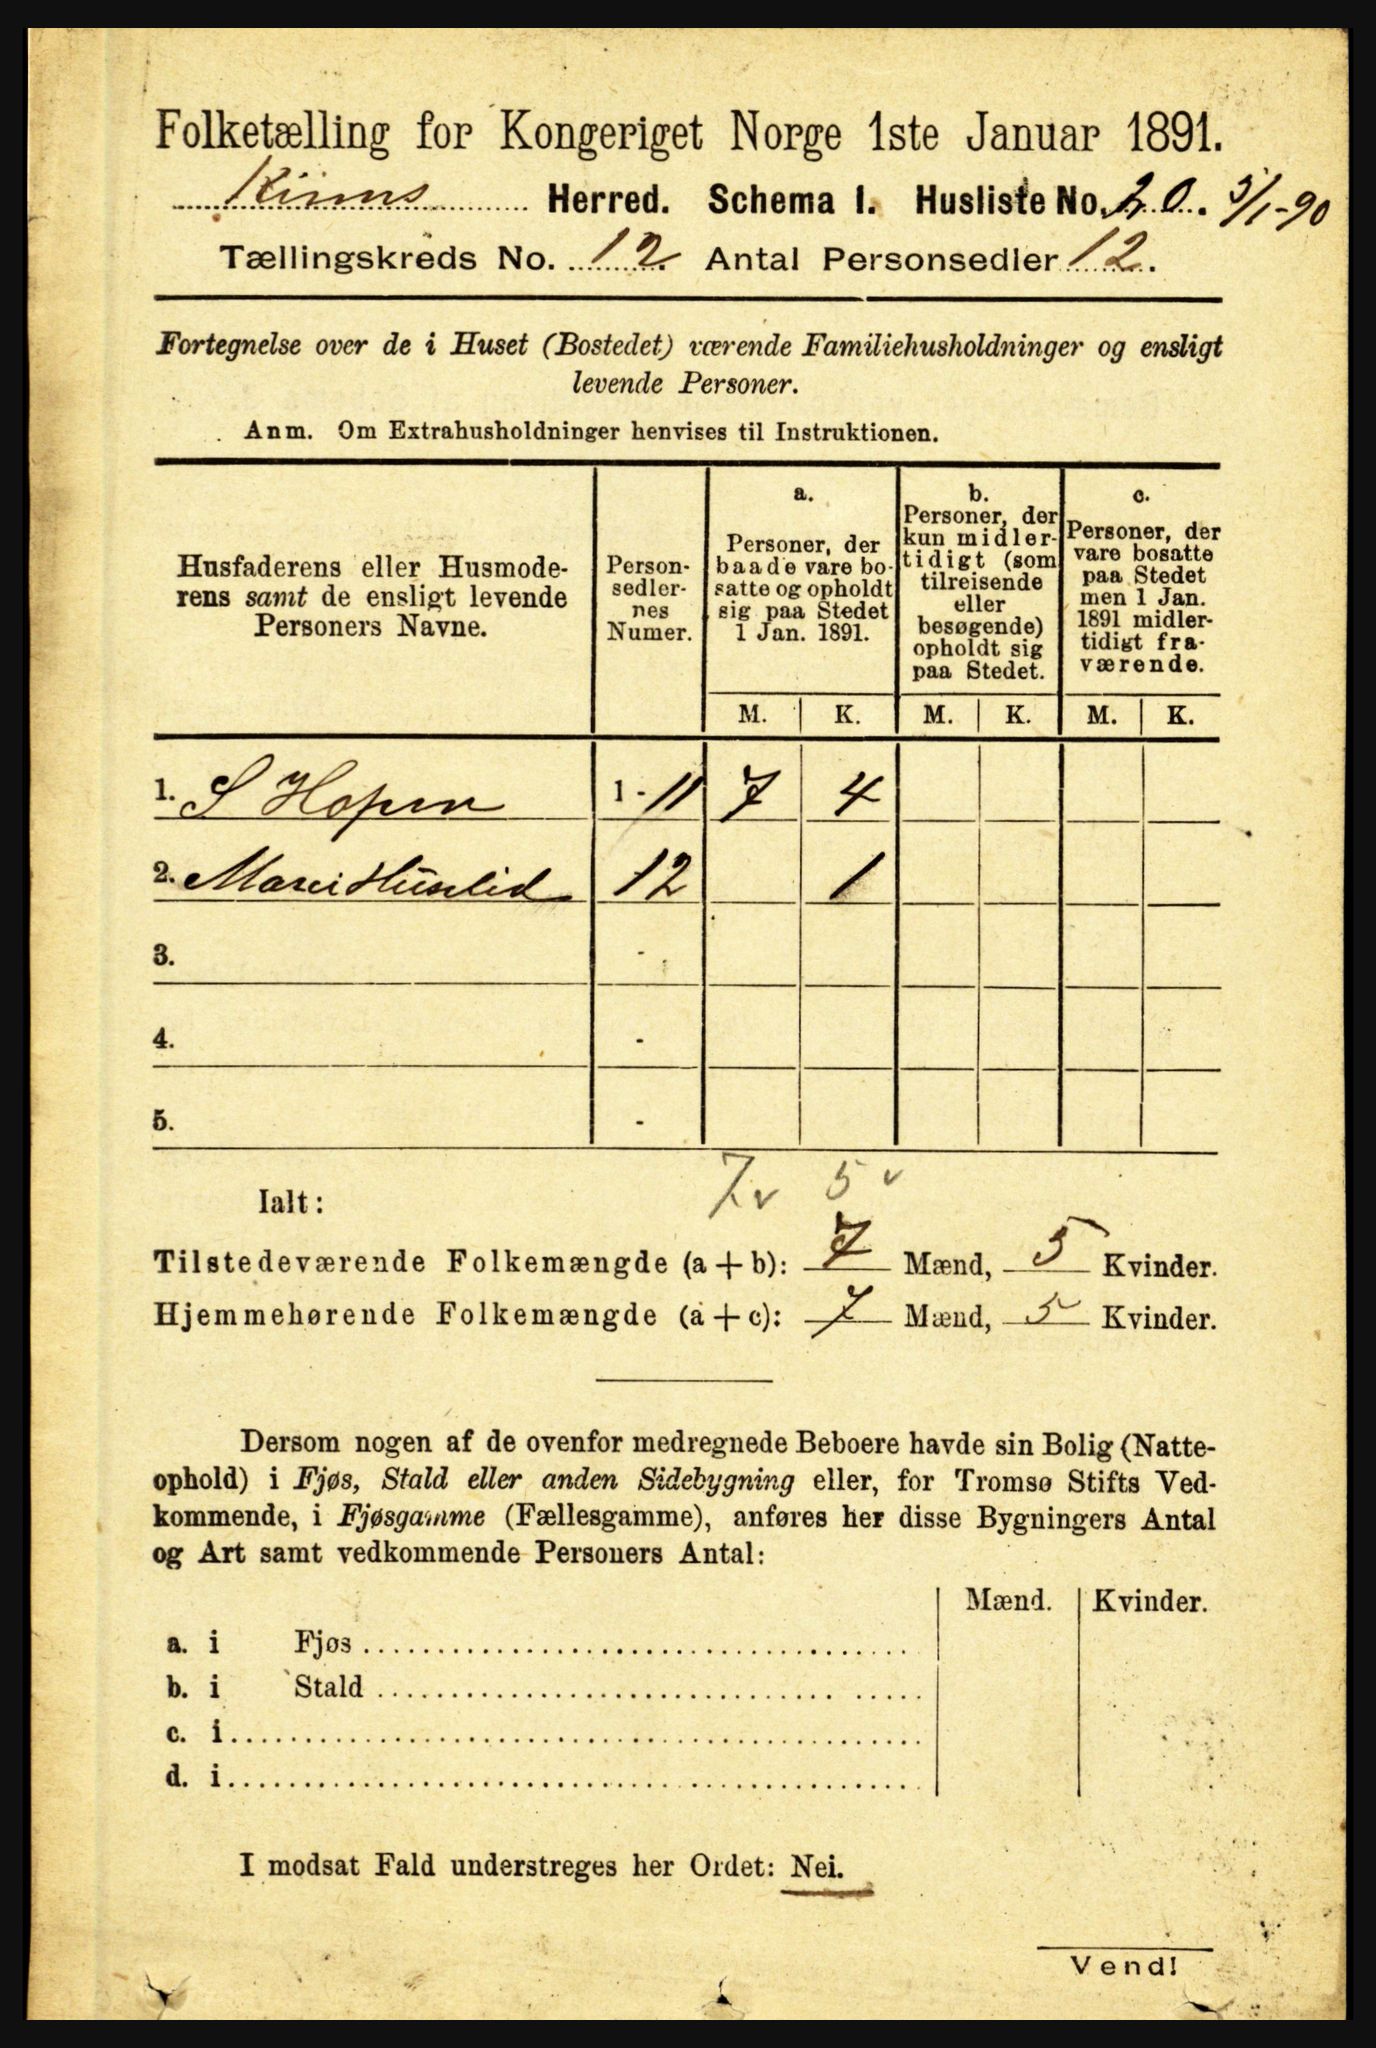 Folketælling for Kongeriget Norge 1ste Januar 1891.
Kinns Herred. Schema 1. Husliste No. 20. 5/1-90
Tællingskreds No. 12. Antal Personsedler 12.
Fortegnelse over de i Huset (Bostedet) værende Familiehusholdninger og ensligt
levende Personer.
Anm. Om Extrahusholdninger henvises til Instruktionen.
Husfaderens eller Husmode-
rens samt de ensligt levende
Personers Navne.
Person-
sedler-
nes
Numer.
a.
Personer, der
baade vare bo-
satte og opholdt
sig paa Stedet
1 Jan. 1891.
b.
Personer, der
kun midler-
tidigt (som
tilreisende
eller
besøgende)
opholdt sig
paa Stedet.
c.
Personer, der
vare bosatte
paa Stedet
men 1 Jan.
1891 midler-
tidigt fra-
værende.
M. K. M. K. M. K.
1. S Hopen 1 - 11 7 4
2. Marie Huslid 12 1
3. -
4. -
5. -
7 v 5 v
Ialt:
Tilstedeværende Folkemængde (a + b): 7 Mænd, 5 Kvinder.
Hjemmehørende Folkemængde (a + c): 7 Mænd, 5 Kvinder.
Dersom nogen af de ovenfor medregnede Beboere havde sin Bolig (Natte-
ophold) i Fjøs, Stald eller anden Sidebygning eller, for Tromsø Stifts Ved-
kommende, i Fjøsgamme (Fællesgamme), anføres her disse Bygningers Antal
og Art samt vedkommende Personers Antal:
Mænd. Kvinder.
a. i Fjøs
b. i Stald
c. i
d. i
I modsat Fald understreges her Ordet: Nei.
Vend!